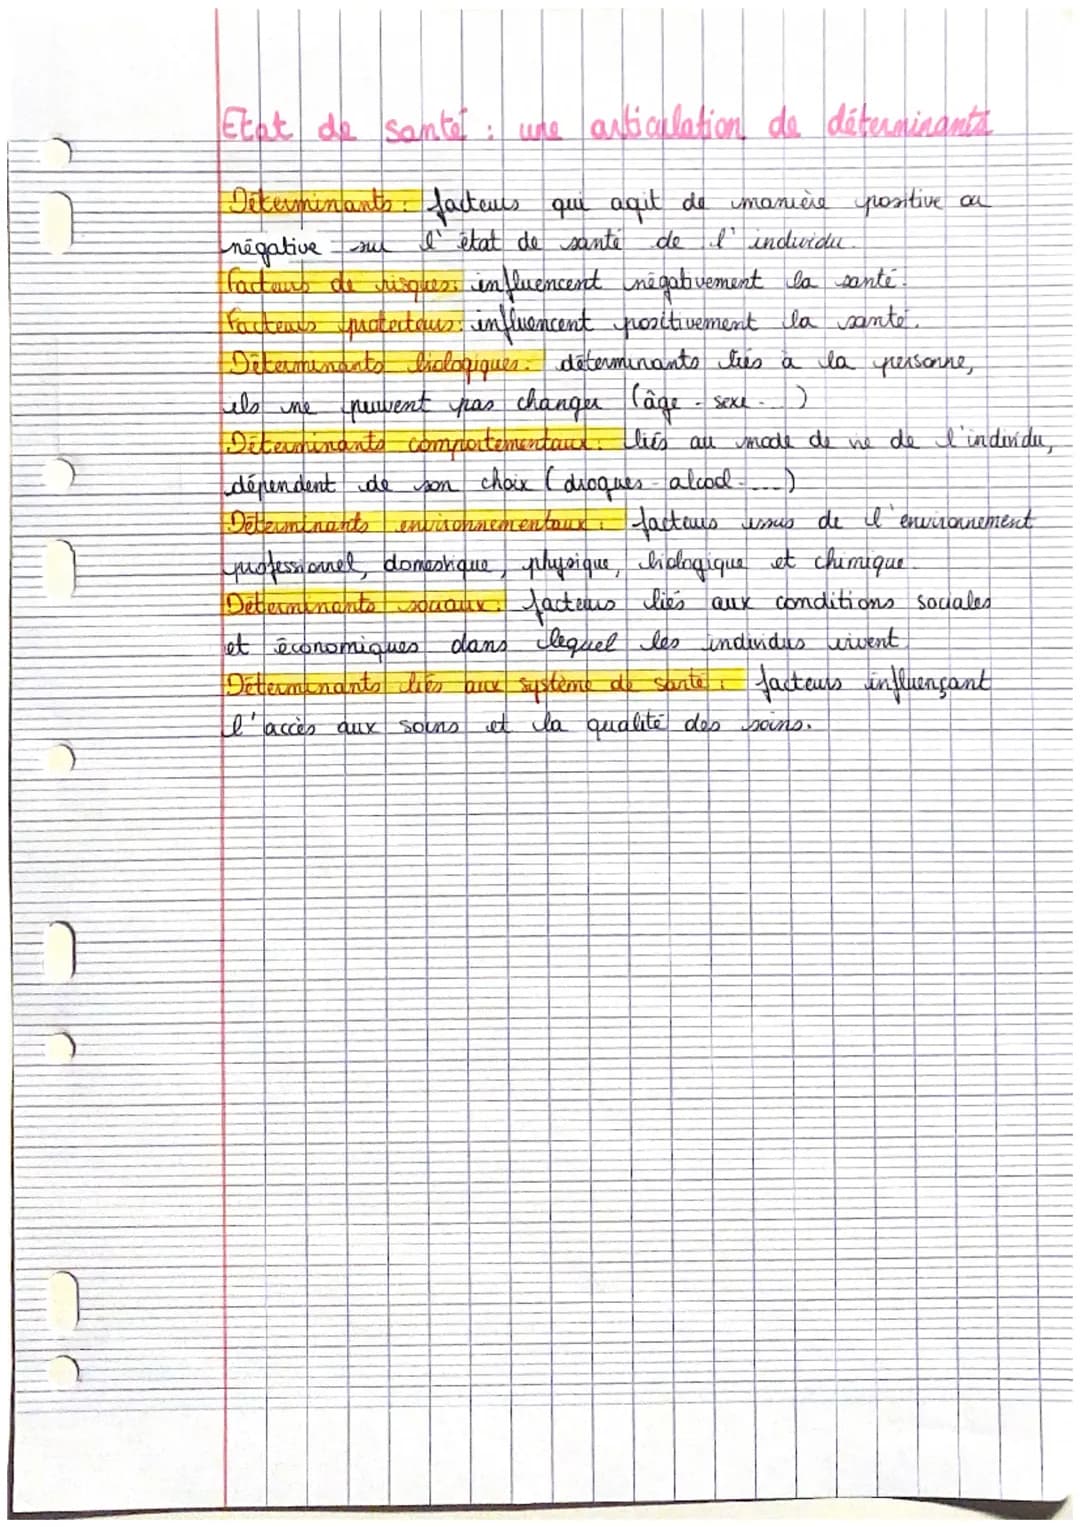 Etat de santé : une articulation de déterminants
Déterminants : facteurs qui agit de manière positive ou
négative sur l'état de santé de l'individu.
Facteurs de risques : influencent négativement la santé.
Facteurs protecteurs : influencent positivement la santé.
Déterminants biologiques : déterminants liés à la personne,
ils ne peuvent pas changer (âge - sexe - ...)
Déterminants comportementaux : liés au mode de vie de l'individu,
dépendent de son choix (drogues - alcool - ...)
Déterminants environnementaux : facteurs issus de l'environnement
professionnel, domestique, physique, biologique et chimique.
Déterminants sociaux : facteurs liés aux conditions sociales
et économiques dans lequel les individus vivent.
Déterminants liés aux système de santé : facteurs influençant
l'accès aux soins et la qualité des soins.